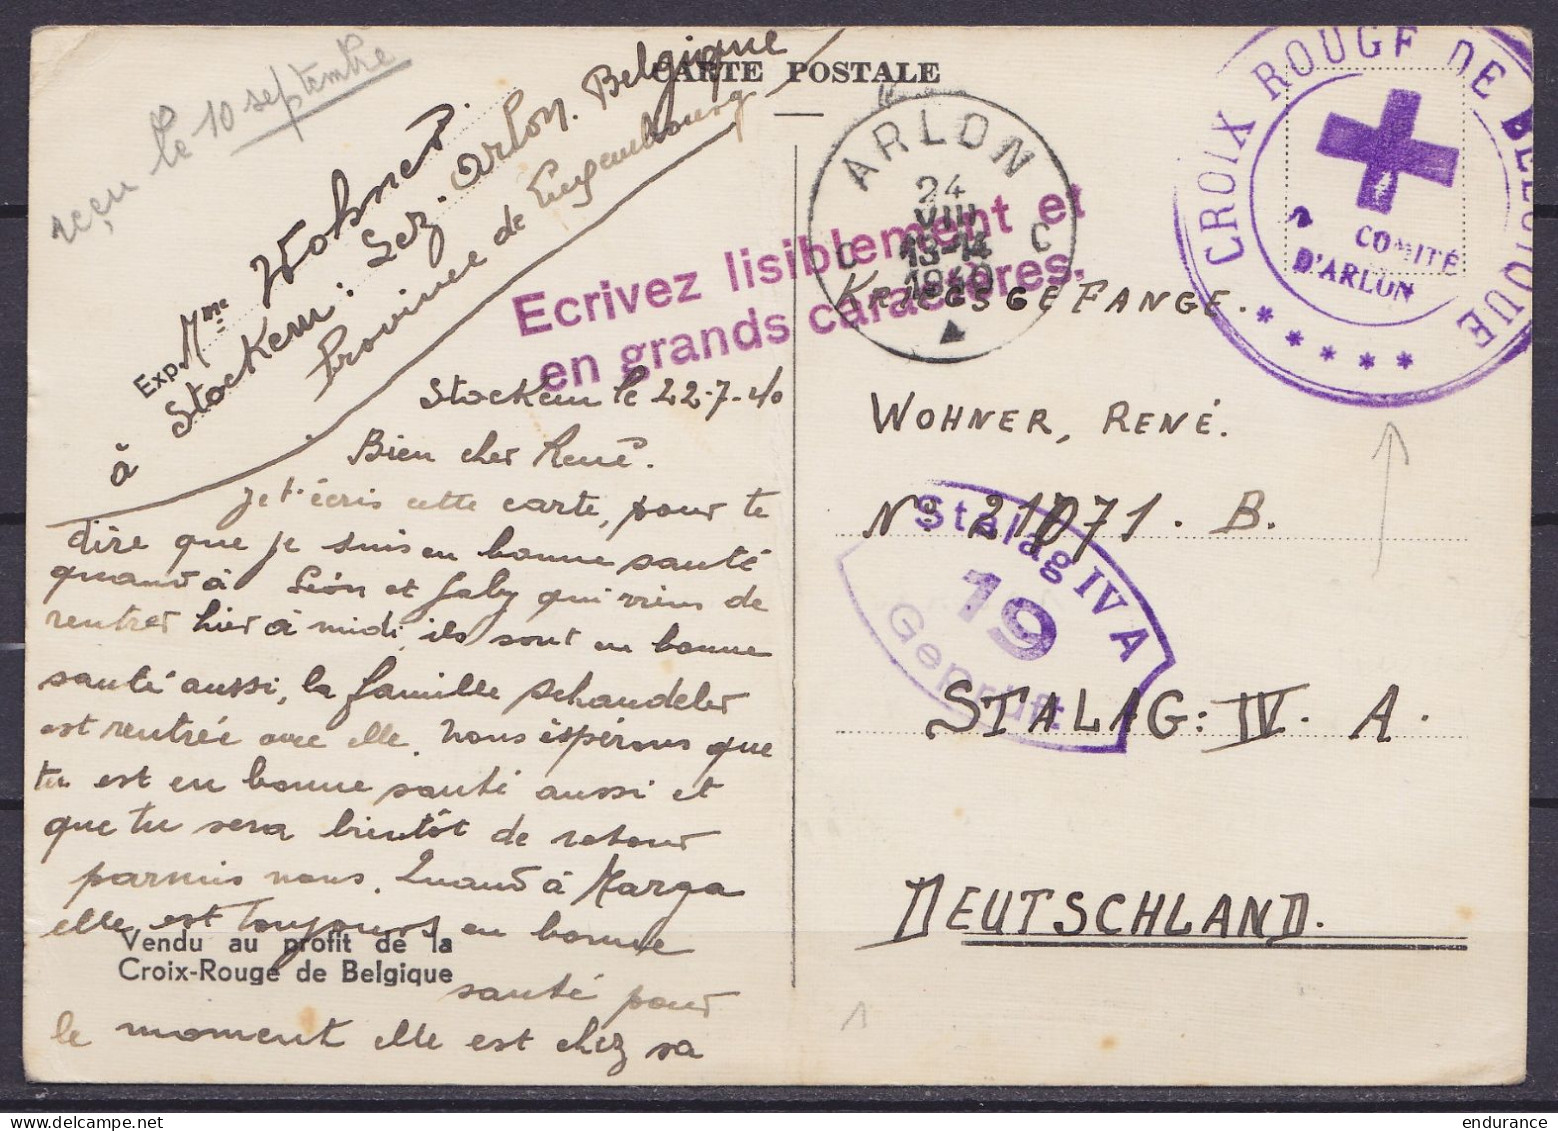 reçu le 10 septembre
CARTE POSTALE
Exp. Mme Wohner
à Stockem. Lez. Arlon. Belgique
Province de Luxembourg
Ecrivez lisiblement et
en grands caractères.
ARLON
24
VIII
13-14
1940
C C
CROIX ROUGE DE BELGIQUE
COMITÉ
D'ARLON
* * * * *
Stockem le 22-7-40
Bien cher René.
je t'écris cette carte, pour te
dire que je suis en bonne santé
quand à Léon et Gaby qui viens de
rentrer hier à midi, ils sont en bonne
santé aussi, la famille Schandeler
est rentrée avec elle. Nous éspérons que
tu est en bonne santé aussi et
que tu sera bientôt de retour
parmis nous. Quand à Marga
elle est toujours en bonne
santé pour
le moment elle est chez sa
Vendu au profit de la
Croix-Rouge de Belgique
KRIEGSGEFANGE.
WOHNER, RENÉ.
No 21071. B.
Stalag IV A
19
Geprüft
STALAG: IV. A.
DEUTSCHLAND.
1
endurance